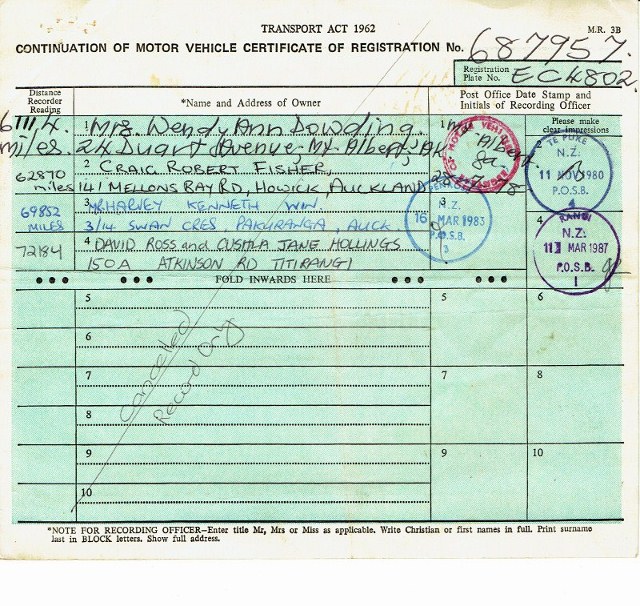 TRANSPORT ACT 1962
M.R. 3B
CONTINUATION OF MOTOR VEHICLE CERTIFICATE OF REGISTRATION No. 687957.
Registration Plate No. EC4802.
Distance Recorder Reading
*Name and Address of Owner
Post Office Date Stamp and Initials of Recording Officer
Please make clear impressions
1 Mrs. Wendy Ann Dowding.
miles. 24 Duart Avenue, Mt. Albert, AK
62870 miles
2 CRAIG ROBERT FISHER,
141 MELLONS BAY RD, HOWICK, AUCKLAND
69852 MILES
3 MR. HARVEY KENNETH WIN.
3/14 SWAN CRES, PAKURANGA, AUCK.
72184
4 DAVID ROSS and CUSHLA JANE HOLLINGS
150A ATKINSON RD TITIRANGI
1 Mt. Albert
2 TE PUKE
N.Z.
11 NOV 1980
P.O.S.B.
3
N.Z.
16 MAR 1983
P.O.S.B.
4
N.Z.
MAR 1987
P.O.S.B.
1
FOLD INWARDS HERE
5
6
7
8
9
10
5
6
7
8
9
10
Cancelled
Record Only
*NOTE FOR RECORDING OFFICER–Enter title Mr, Mrs or Miss as applicable. Write Christian or first names in full. Print surname
last in BLOCK letters. Show full address.